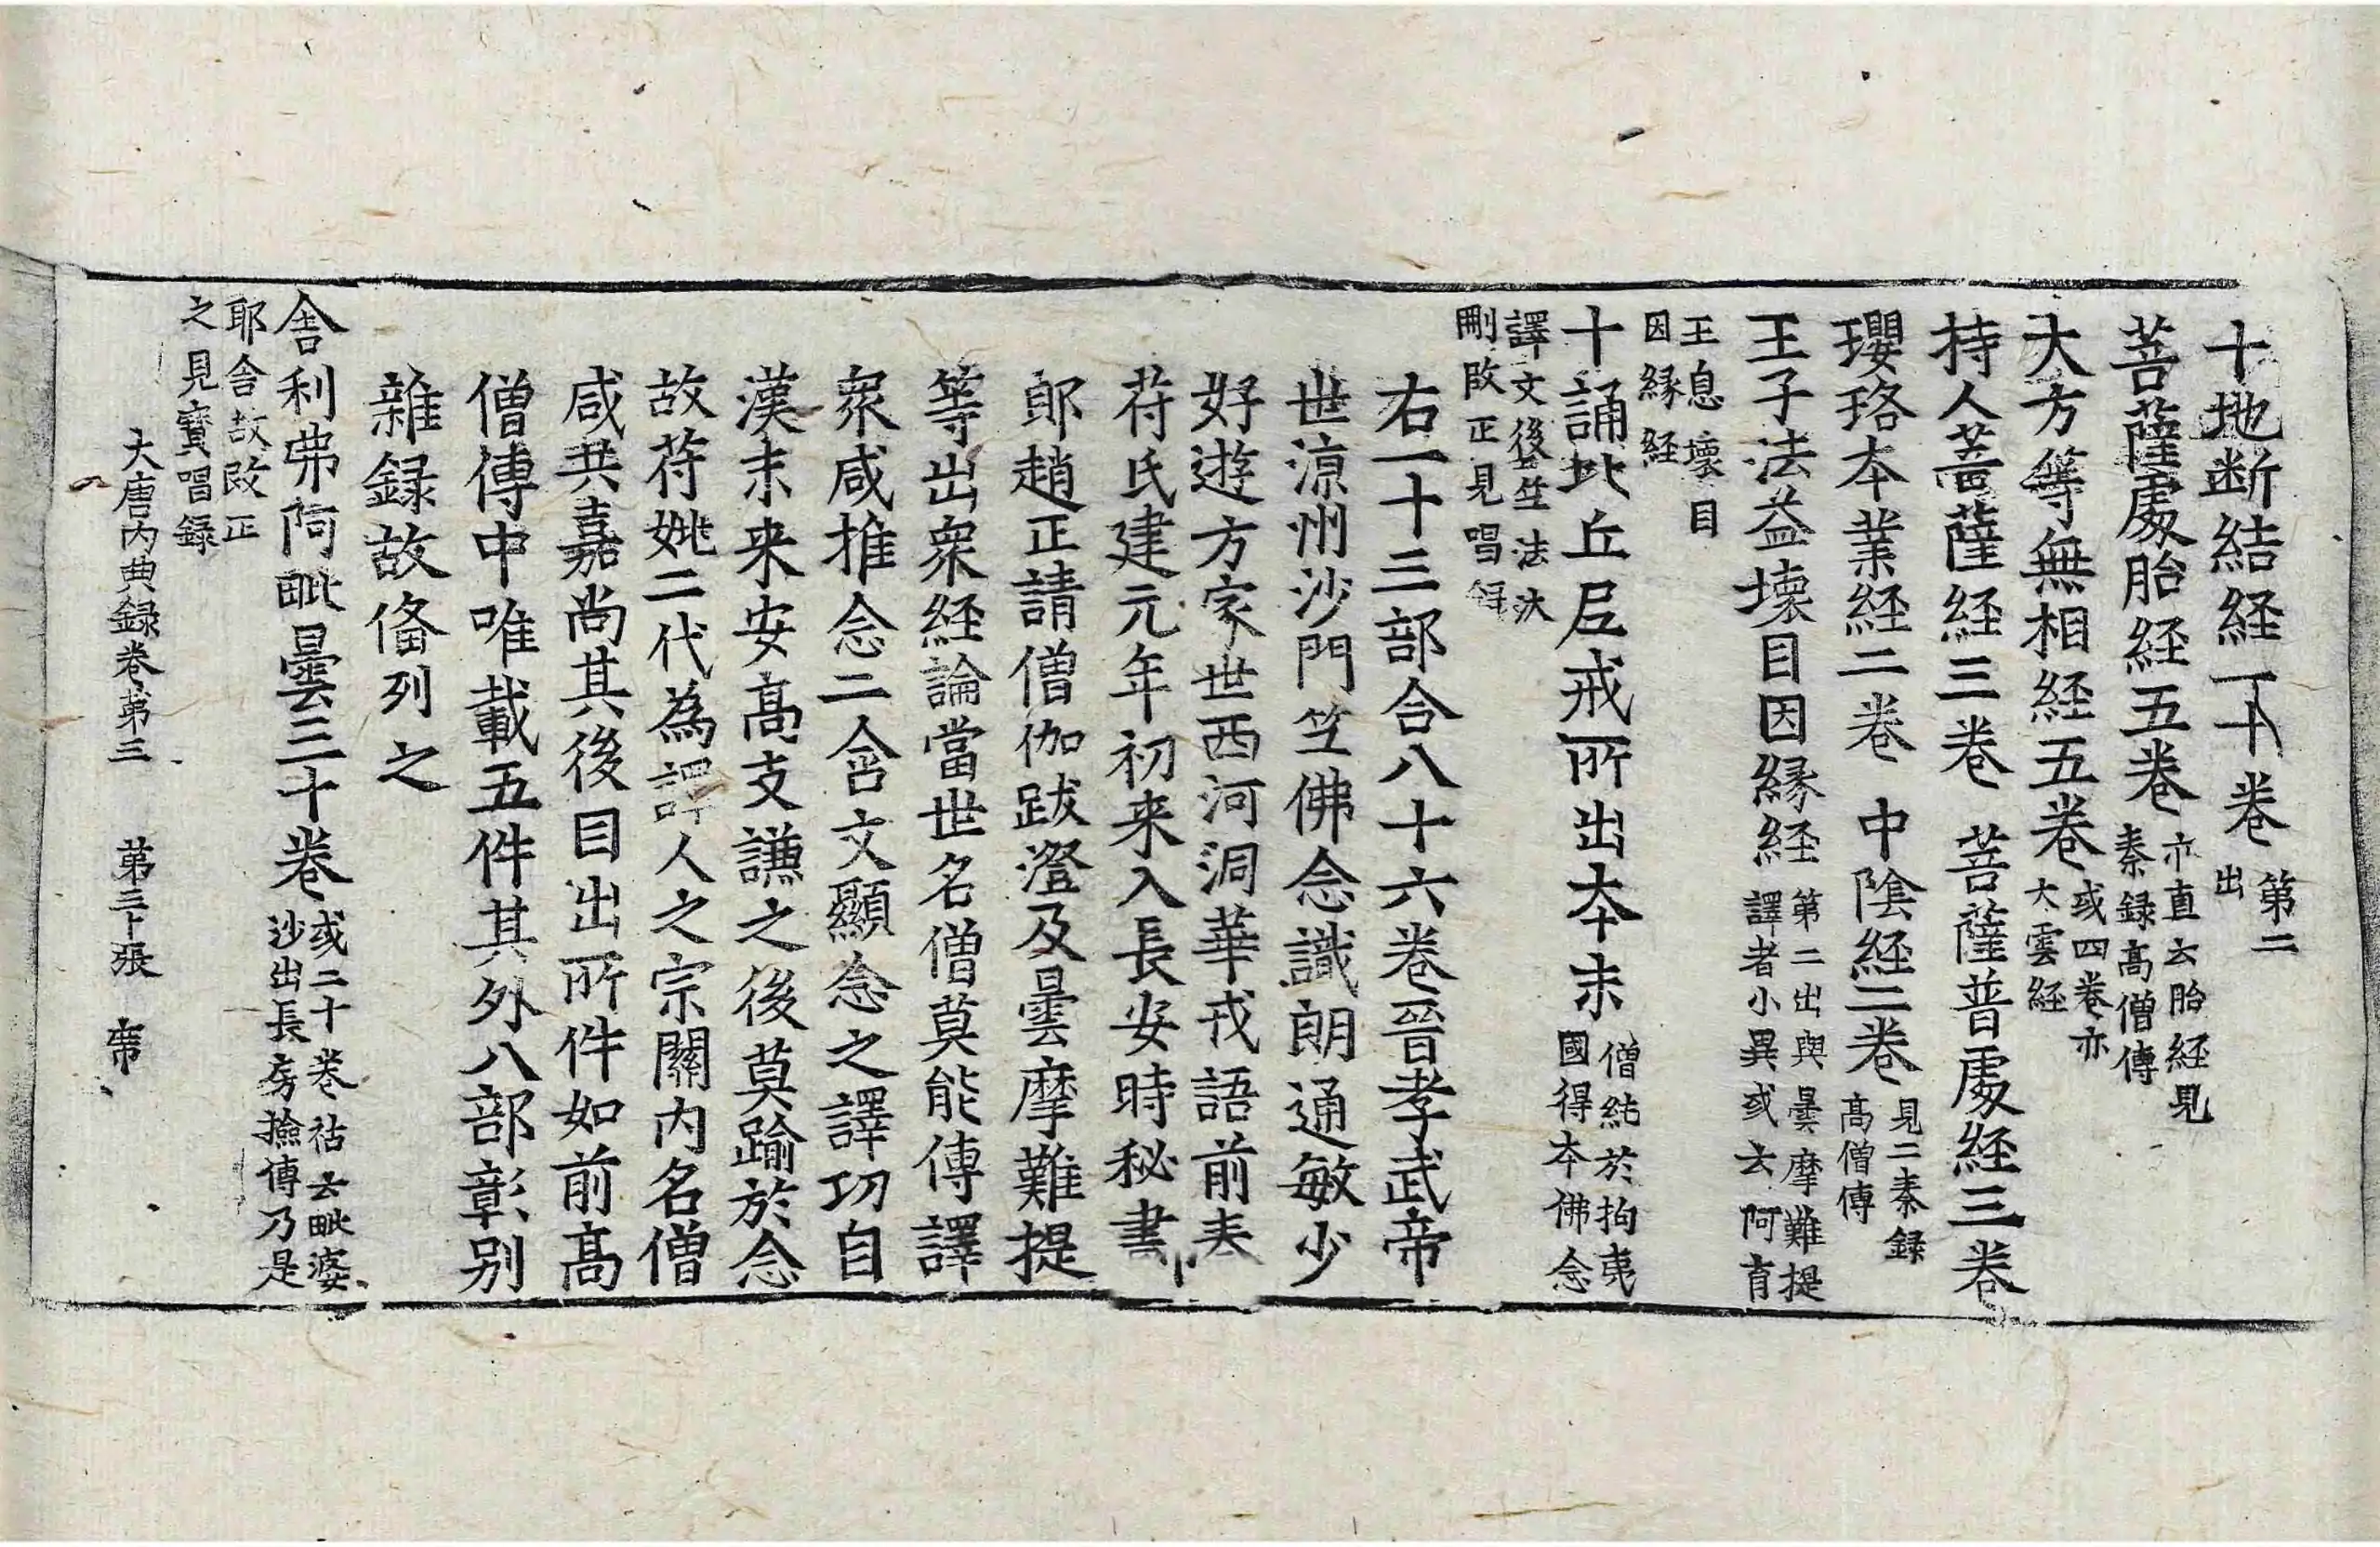 十地断結経一十卷 第二出
菩薩處胎経五卷 亦直云胎経見秦録高僧傳
大方等無相経五卷 或四卷亦大雲経
持人菩薩経三卷 菩薩普處経三卷
瓔珞夲業経二卷 中陰経二卷 見二秦録高僧傳
王子法益壞目因縁経 第二出與曇摩難提譯者小異或云阿育
王息壞目因縁経
十誦比丘尼戒所出夲末 僧純於拘夷國得夲佛念
譯文後竺法汰刪改正見唱録
右一十三部合八十六卷晉孝武帝
世涼州沙門竺佛念識朗通敏少
好遊方家世西河洞華戎語前秦
苻氏建元年初来入長安時秘書
郎趙正請僧伽跋澄及曇摩難提
等出衆経論當世名僧莫能傳譯
衆咸推念二含文顯念之譯功自
漢末来安髙支謙之後莫踰於念
故苻姚二代為譯人之宗關內名僧
咸共嘉尚其後目出所件如前髙
僧傳中唯載五件其外八部彰别
雜録故偹列之
舍利弗阿毗曇三十卷 或二十卷祐云毗婆沙出長房撿傳乃是
耶舍故改正之見寶唱録
大唐內典録卷第三 第三十張 帝